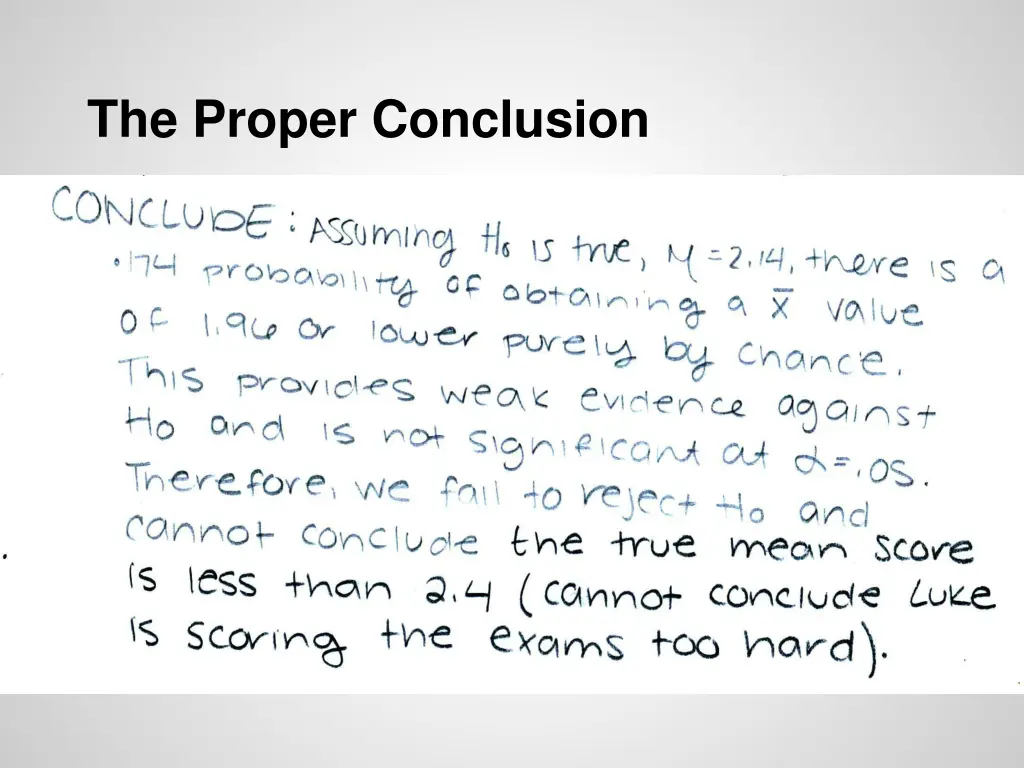 The Proper Conclusion
CONCLUDE: Assuming H₀ is true, μ = 2.14, there is a
.174 probability of obtaining a x̄ value
of 1.96 or lower purely by chance.
This provides weak evidence against
H₀ and is not significant at α = .05.
Therefore, we fail to reject H₀ and
cannot conclude the true mean score
is less than 2.4 (cannot conclude Luke
is scoring the exams too hard).